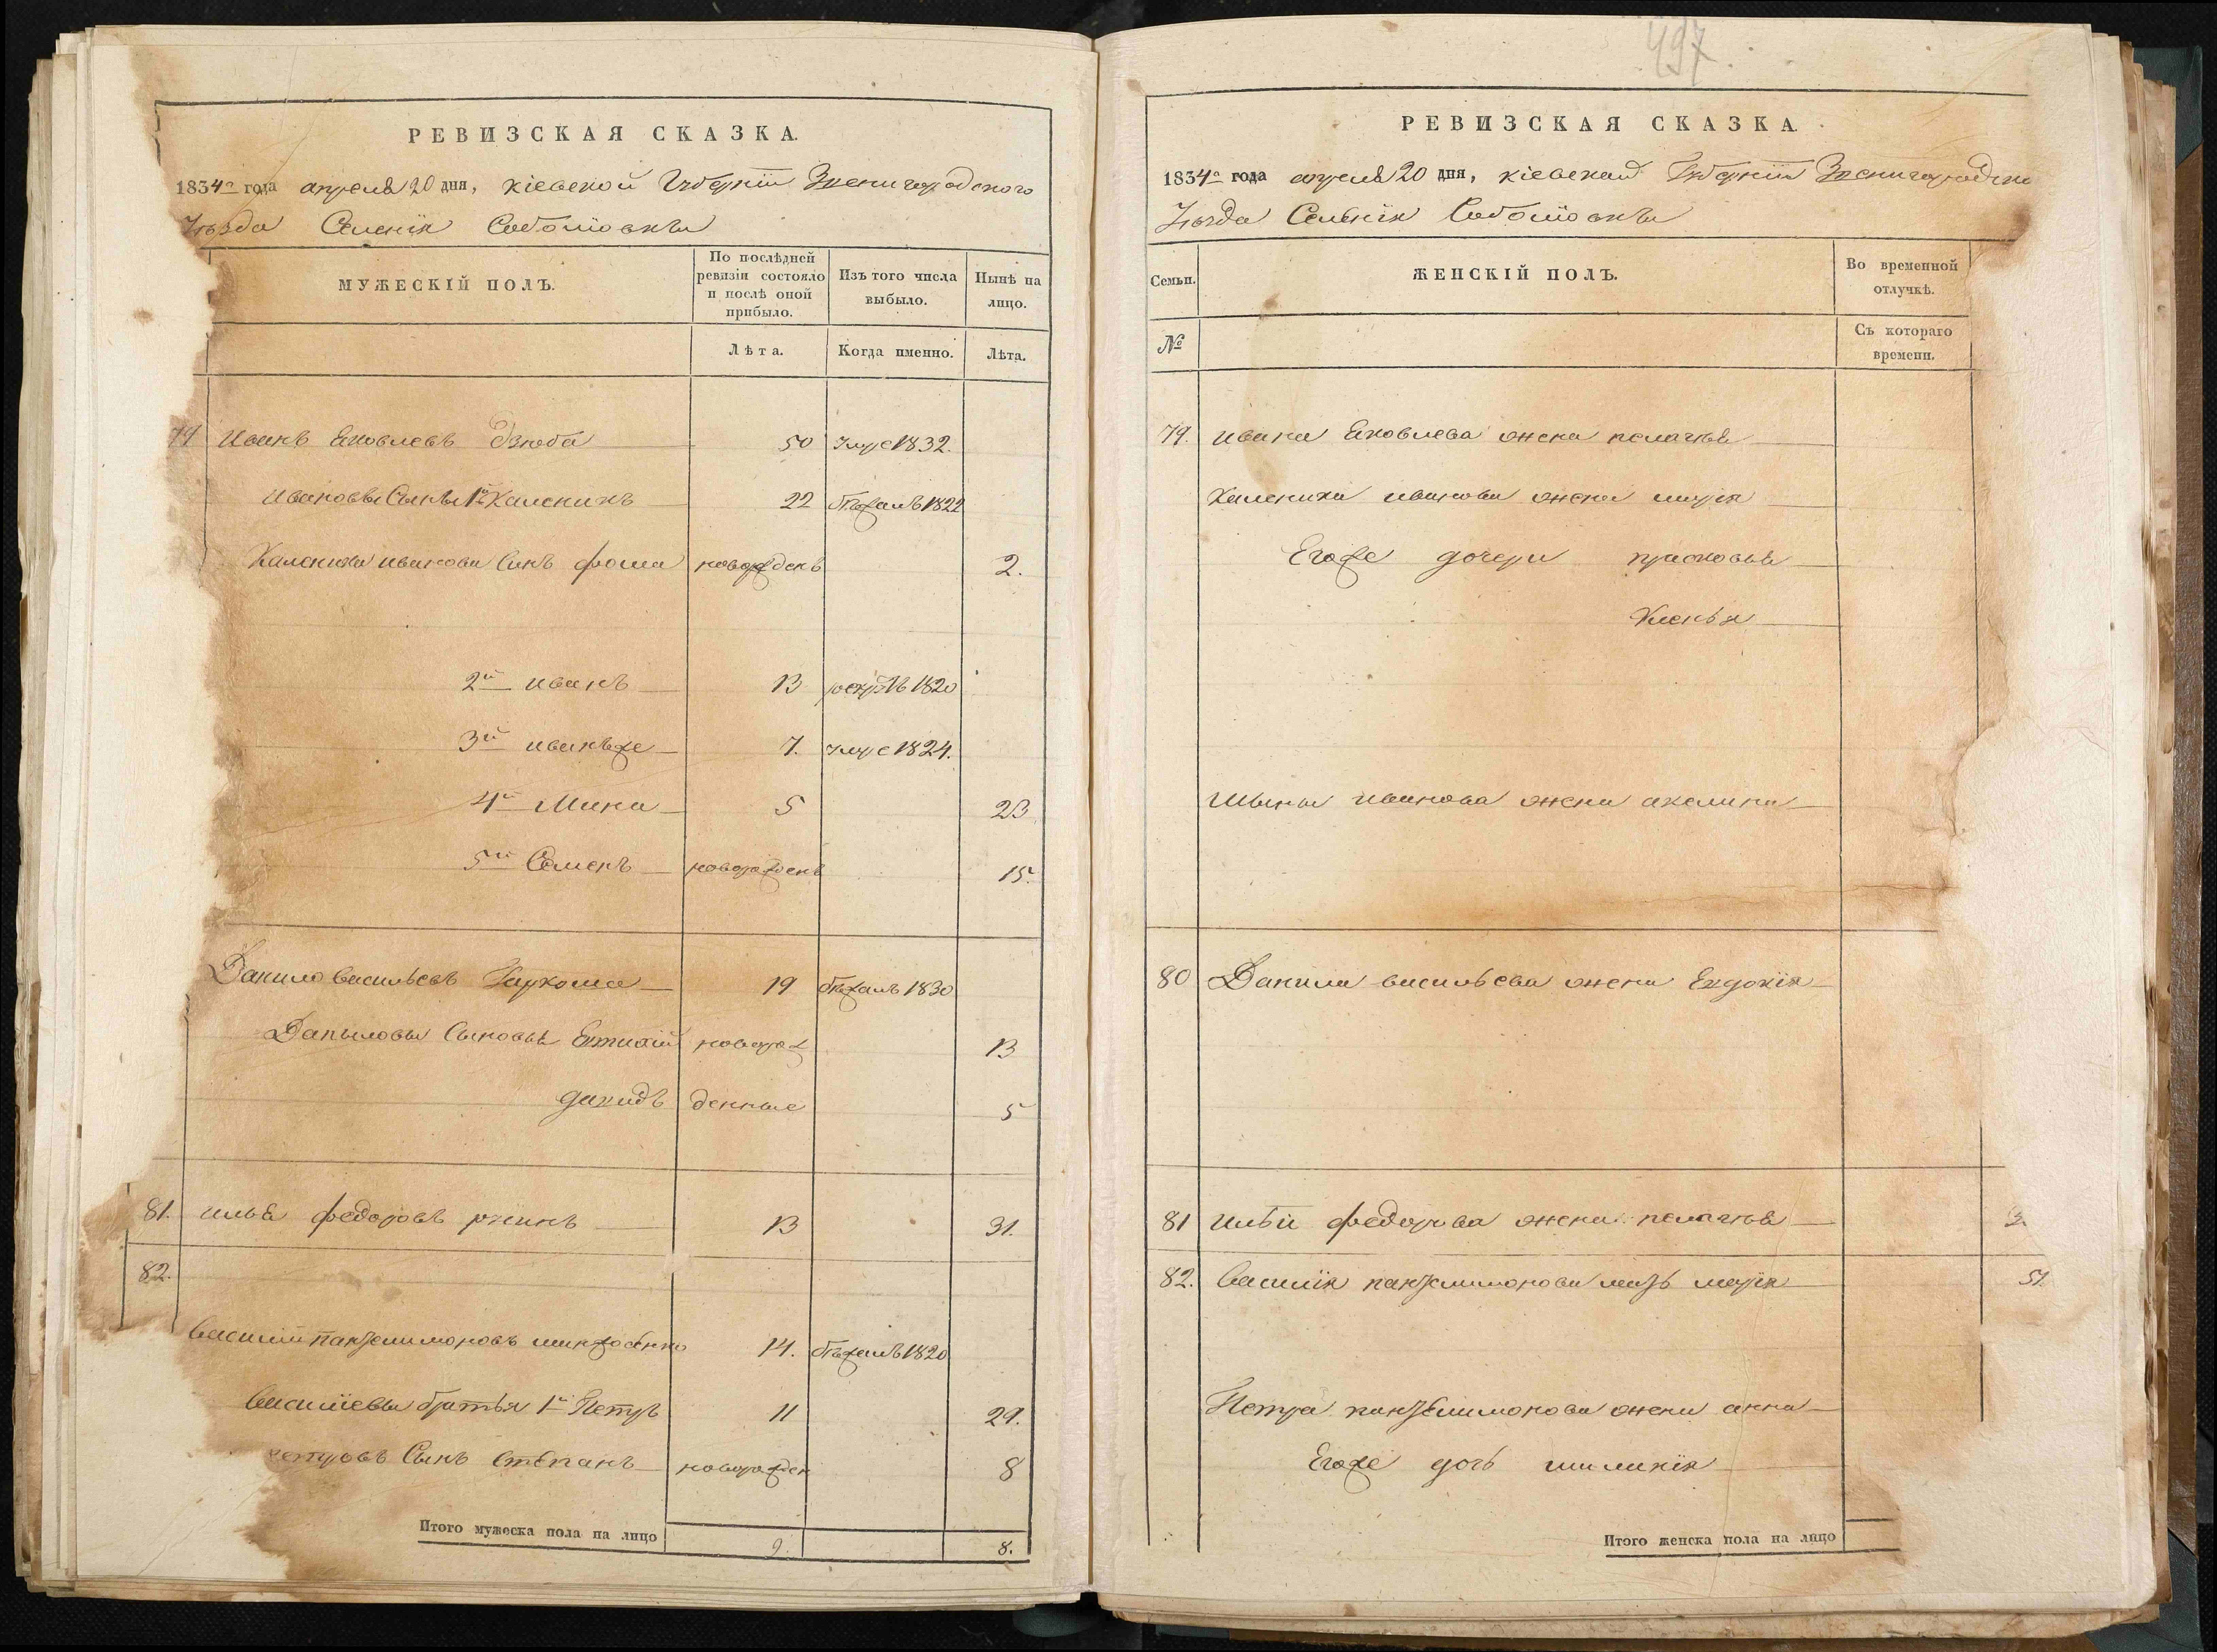 РЕВИЗСКАЯ СКАЗКА.
1834го года апреля 20 дня, кіевской Губерніи Звенигородского
Уѣзда Селенія Соболіовки
МУЖЕСКІЙ ПОЛЪ.
По послѣдней ревизіи состояло и послѣ оной прибыло.
Изъ того числа выбыло.
Нынѣ на лицо.
Лѣта.
Когда именно.
Лѣта.
79 Иванъ Яковлевъ Дзюба 50 умре 1832.
Ивановы Сыны 1й Каленикъ 22 1822
Каленика иванова Сынъ фома новорожденъ 2.
2й иванъ 13 1820
3й иванъже 7. умре 1824.
4й Мина 5 23
5й Семенъ новорожденъ 15.
Данило васильевъ 19 бѣжалъ 1830
Даныловы Сыновья Евтихій новорож 13
давидъ денные 5
81. илья федоровъ 13 31.
82.
Василій пантелимоновъ 14. бѣжалъ 1820
Василіевы братья 1й Петръ 11 29.
петровъ Сынъ Степанъ новорожден 8
Итого мужеска пола на лицо 9. 8.
497.
РЕВИЗСКАЯ СКАЗКА.
1834го года апреля 20 дня, кіевской Губерніи
Уѣзда Селенія Соболіовки
Семьи.
ЖЕНСКІЙ ПОЛЪ.
Во временной отлучкѣ.
№
Съ котораго времени.
79. ивана Яковлева жена пелагѣя
Каленика иванова жена марія
Егоже дочери прасковья
Ксенья
иванова жена акелина
80 Данила васильева жена Евдокія
81 ильи федорова жена пелагѣя
82. Василія пантелимонова мать марія 51.
Петра пантелимонова жена анна
Егоже дочь
Итого женска пола на лицо